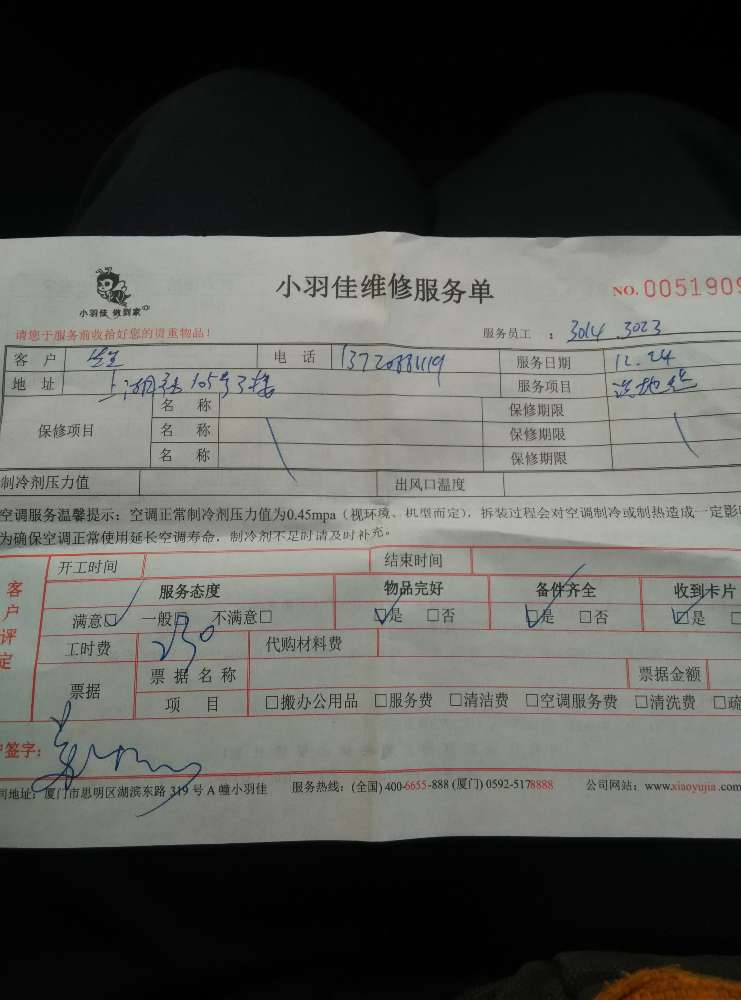 小羽佳 做到家
小羽佳维修服务单
NO. 0051909
请您于服务前收拾好您的贵重物品！
服务员工 ： 3014 3023
客 户 电 话 服务日期 12.24
地 址 105号 服务项目 洗地毯
保修项目
名 称 保修期限
名 称 保修期限
名 称 保修期限
制冷剂压力值 出风口温度
空调服务温馨提示：空调正常制冷剂压力值为0.45mpa（视环境、机型而定），拆装过程会对空调制冷或制热造成一定影
为确保空调正常使用延长空调寿命，制冷剂不足时请及时补充。
客户评定
开工时间 结束时间
服务态度 物品完好 备件齐全 收到卡片
满意□ 一般□ 不满意□ □是 □否 □是 □否 □是
工时费 230 代购材料费
票据 票 据 名 称 票据金额
项 目 □搬办公用品 □服务费 □清洁费 □空调服务费 □清洗费 □疏
户签字：
司地址：厦门市思明区湖滨东路 319 号 A 幢小羽佳 服务热线：(全国) 400-6655-888 (厦门) 0592-5178888 公司网站：www.xiaoyujia.com